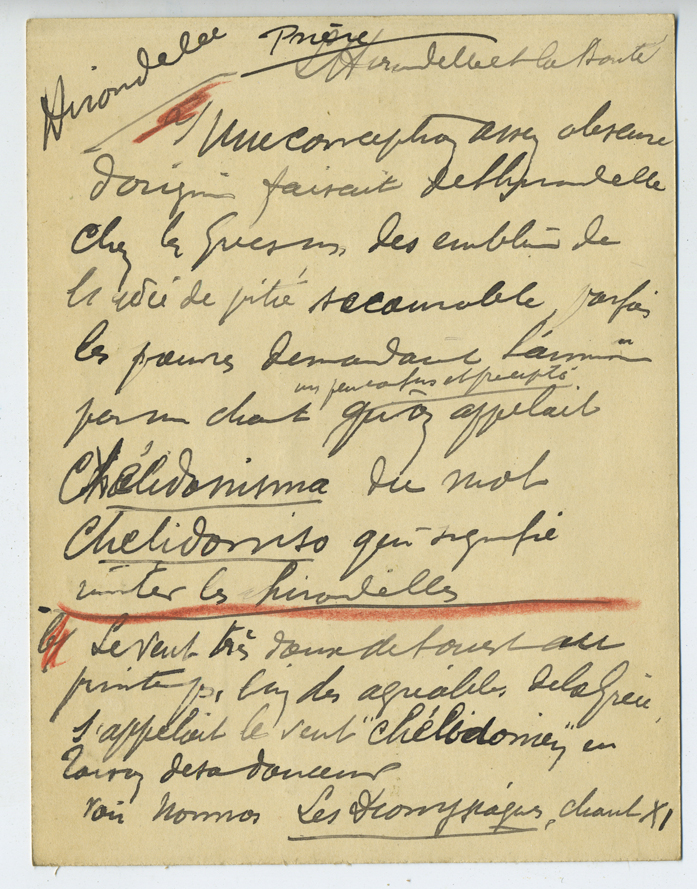 Hirondelle Prière
L'Hirondelle et la Bonté
a) Une conception assez obscure
d'origine faisait de l'hirondelle
chez les Grecs un des emblèmes de
l'idée de pitié secourable, parfois
les pauvres demandant l'aumône
par un chant qu'on appelait
Chélidonisma du mot
Chelidonizo qui signifie
imiter les hirondelles
b) Le vent très doux de l'ouest au
printemps, l'un des agréables de la Grèce,
s'appelait le vent "Chélidonien" en
raison de sa douceur
voir Nonnos Les Dionysiaques, chant XI